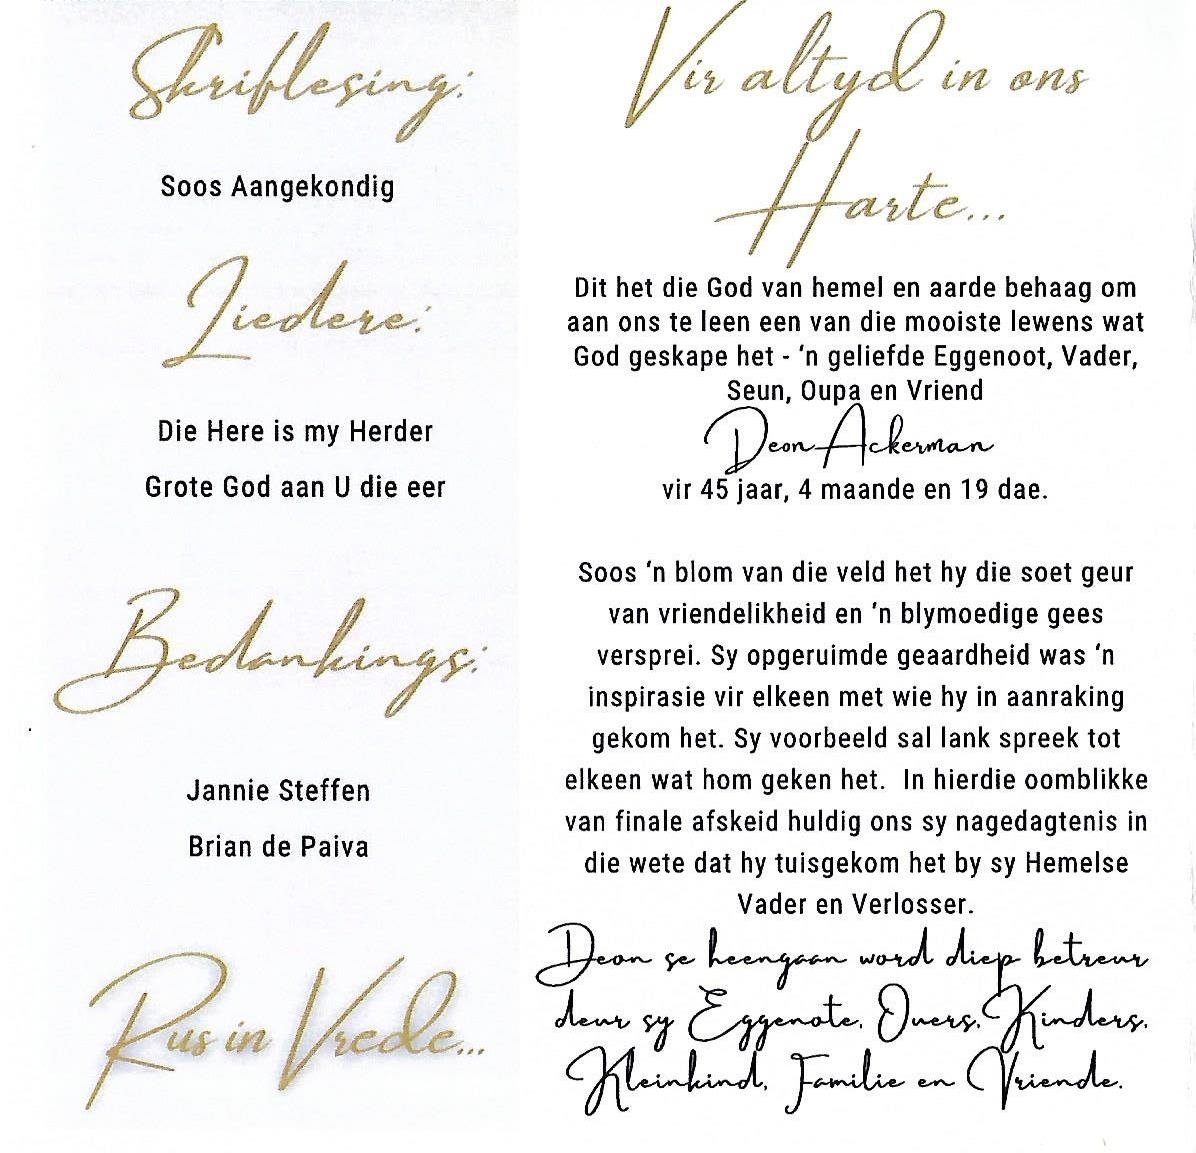 Skriflesing:
Soos Aangekondig
Liedere:
Die Here is my Herder
Grote God aan U die eer
Bedankings:
Jannie Steffen
Brian de Paiva
Rus in Vrede...
Vir altyd in ons
Harte...
Dit het die God van hemel en aarde behaag om
aan ons te leen een van die mooiste lewens wat
God geskape het - ‘n geliefde Eggenoot, Vader,
Seun, Oupa en Vriend
Deon Ackerman
vir 45 jaar, 4 maande en 19 dae.
Soos ‘n blom van die veld het hy die soet geur
van vriendelikheid en ‘n blymoedige gees
versprei. Sy opgeruimde geaardheid was ‘n
inspirasie vir elkeen met wie hy in aanraking
gekom het. Sy voorbeeld sal lank spreek tot
elkeen wat hom geken het. In hierdie oomblikke
van finale afskeid huldig ons sy nagedagtenis in
die wete dat hy tuisgekom het by sy Hemelse
Vader en Verlosser.
Deon se heengaan word diep betreur
deur sy Eggenote, Ouers, Kinders,
Kleinkind, Familie en Vriende.